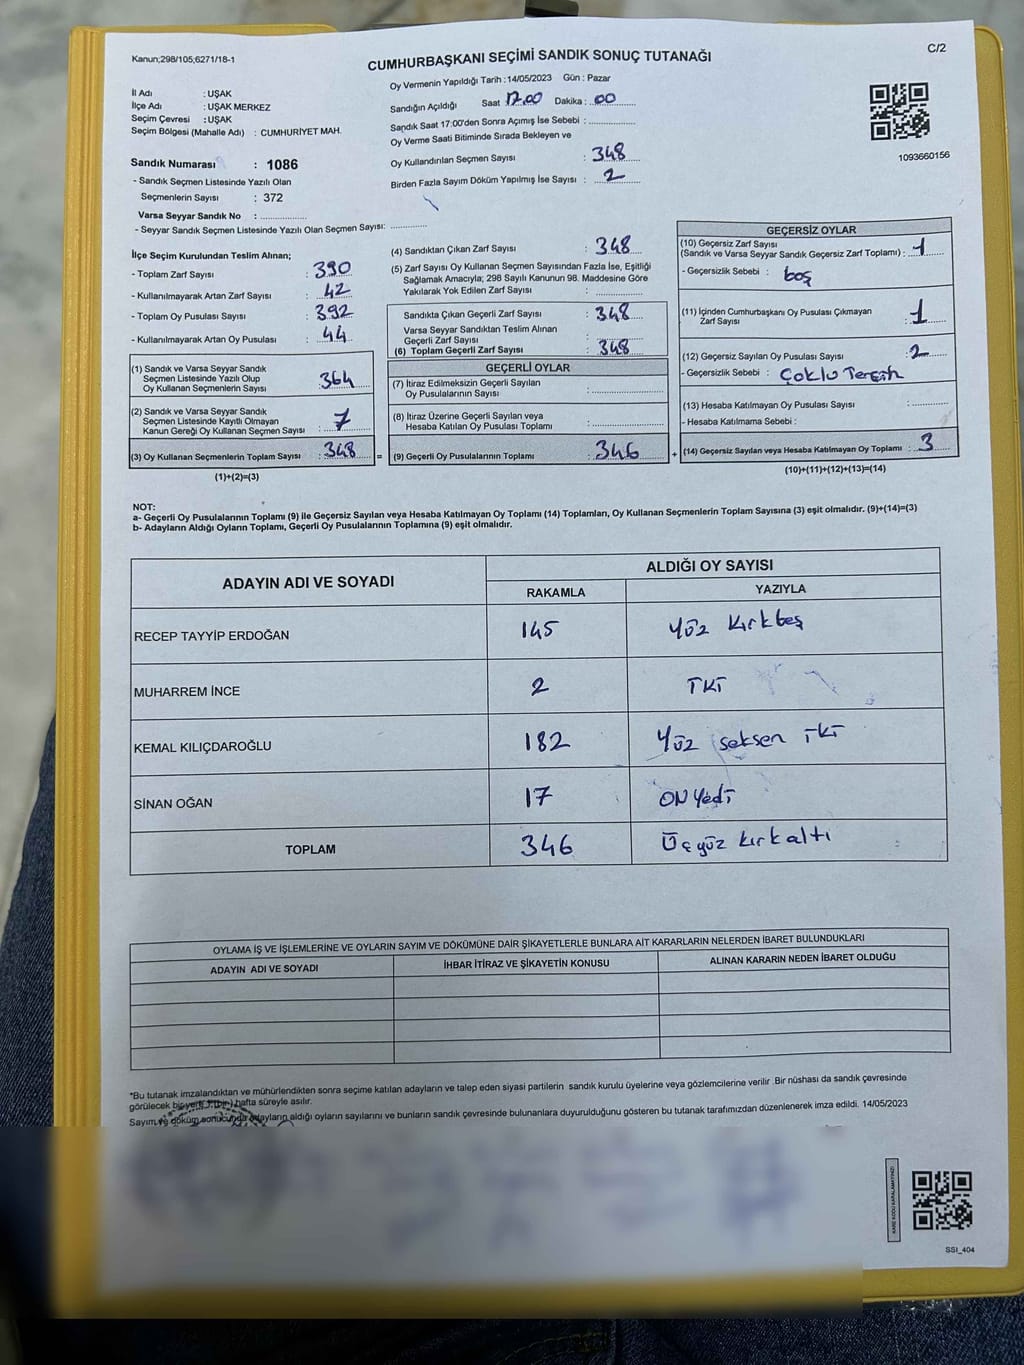 Kanun;298/105;6271/18-1
CUMHURBAŞKANI SEÇİMİ SANDIK SONUÇ TUTANAĞI
C/2
İl Adı : UŞAK
İlçe Adı : UŞAK MERKEZ
Seçim Çevresi : UŞAK
Seçim Bölgesi (Mahalle Adı) : CUMHURİYET MAH.
Sandık Numarası : 1086
- Sandık Seçmen Listesinde Yazılı Olan
Seçmenlerin Sayısı : 372
Varsa Seyyar Sandık No : ..............
- Seyyar Sandık Seçmen Listesinde Yazılı Olan Seçmen Sayısı: ..............
Oy Vermenin Yapıldığı Tarih : 14/05/2023 Gün : Pazar
Sandığın Açıldığı Saat 17.00 Dakika : 00
Sandık Saat 17:00'den Sonra Açımış İse Sebebi : ..............
Oy Verme Saati Bitiminde Sırada Bekleyen ve
Oy Kullandırılan Seçmen Sayısı : 348
Birden Fazla Sayım Döküm Yapılmış İse Sayısı : 2
1093660156
İlçe Seçim Kurulundan Teslim Alınan;
- Toplam Zarf Sayısı : 390
- Kullanılmayarak Artan Zarf Sayısı : 42
- Toplam Oy Pusulası Sayısı : 392
- Kullanılmayarak Artan Oy Pusulası : 44
(1) Sandık ve Varsa Seyyar Sandık
Seçmen Listesinde Yazılı Olup
Oy Kullanan Seçmenlerin Sayısı : 364
(2) Sandık ve Varsa Seyyar Sandık
Seçmen Listesinde Kayıtlı Olmayan
Kanun Gereği Oy Kullanan Seçmen Sayısı : 7
(3) Oy Kullanan Seçmenlerin Toplam Sayısı : 348 =
(1)+(2)=(3)
(4) Sandıktan Çıkan Zarf Sayısı : 348
(5) Zarf Sayısı Oy Kullanan Seçmen Sayısından Fazla İse, Eşitliği
Sağlamak Amacıyla; 298 Sayılı Kanunun 98. Maddesine Göre
Yakılarak Yok Edilen Zarf Sayısı : ..............
Sandıkta Çıkan Geçerli Zarf Sayısı : 348
Varsa Seyyar Sandıktan Teslim Alınan
Geçerli Zarf Sayısı : ..............
(6) Toplam Geçerli Zarf Sayısı : 348
GEÇERLİ OYLAR
(7) İtiraz Edilmeksizin Geçerli Sayılan
Oy Pusulalarının Sayısı : ..............
(8) İtiraz Üzerine Geçerli Sayılan veya
Hesaba Katılan Oy Pusulası Toplamı : ..............
(9) Geçerli Oy Pusulalarının Toplamı : 346 +
GEÇERSİZ OYLAR
(10) Geçersiz Zarf Sayısı
(Sandık ve Varsa Seyyar Sandık Geçersiz Zarf Toplamı) : 1
- Geçersizlik Sebebi : boş
(11) İçinden Cumhurbaşkanı Oy Pusulası Çıkmayan
Zarf Sayısı : 1
(12) Geçersiz Sayılan Oy Pusulası Sayısı : 2
- Geçersizlik Sebebi : Çoklu Tercih
(13) Hesaba Katılmayan Oy Pusulası Sayısı : ..............
- Hesaba Katılmama Sebebi :
(14) Geçersiz Sayılan veya Hesaba Katılmayan Oy Toplamı : 3
(10)+(11)+(12)+(13)=(14)
NOT:
a- Geçerli Oy Pusulalarının Toplamı (9) ile Geçersiz Sayılan veya Hesaba Katılmayan Oy Toplamı (14) Toplamları, Oy Kullanan Seçmenlerin Toplam Sayısına (3) eşit olmalıdır. (9)+(14)=(3)
b- Adayların Aldığı Oyların Toplamı, Geçerli Oy Pusulalarının Toplamına (9) eşit olmalıdır.
ADAYIN ADI VE SOYADI ALDIĞI OY SAYISI
RAKAMLA YAZIYLA
RECEP TAYYİP ERDOĞAN 145 Yüz kırkbeş
MUHARREM İNCE 2 İKİ
KEMAL KILIÇDAROĞLU 182 Yüz seksen İKİ
SİNAN OĞAN 17 ON Yedi
TOPLAM 346 Üçyüz kırkaltı
OYLAMA İŞ VE İŞLEMLERİNE VE OYLARIN SAYIM VE DÖKÜMÜNE DAİR ŞİKAYETLERLE BUNLARA AİT KARARLARIN NELERDEN İBARET BULUNDUKLARI
ADAYIN ADI VE SOYADI İHBAR İTİRAZ VE ŞİKAYETİN KONUSU ALINAN KARARIN NEDEN İBARET OLDUĞU
*Bu tutanak imzalandıktan ve mühürlendikten sonra seçime katılan adayların ve talep eden siyasi partilerin sandık kurulu üyelerine veya gözlemcilerine verilir .Bir nüshası da sandık çevresinde
görülecek bir yerde 1 (bir-) hafta süreyle asılır.
Sayım ve döküm sonucunda adayların aldığı oyların sayılarını ve bunların sandık çevresinde bulunanlara duyurulduğunu gösteren bu tutanak tarafımızdan düzenlenerek imza edildi. 14/05/2023
SSI_404